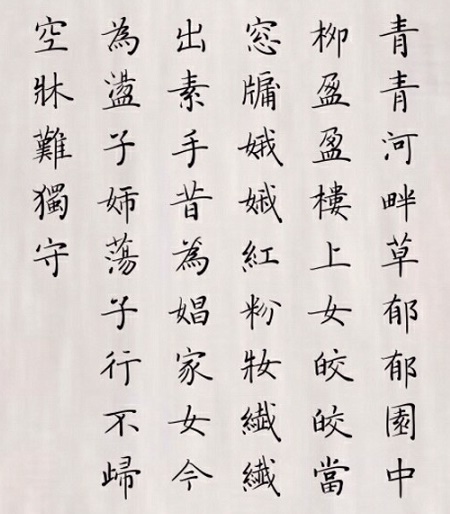 青青河畔草郁郁園中
柳盈盈樓上女皎皎當
窓牖娥娥紅粉妝纖纖
出素手昔為娼家女今
為盪子婦蕩子行不歸
空牀難獨守